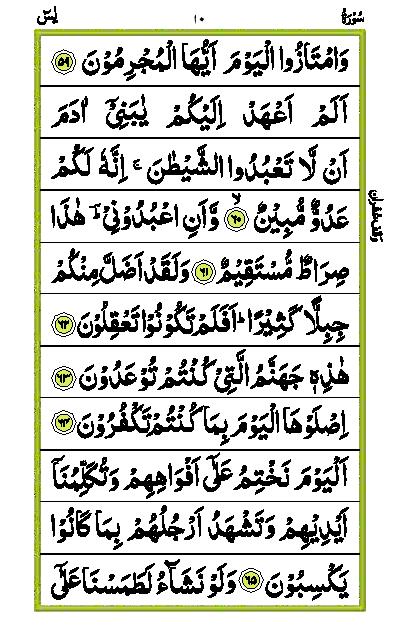 سُوْرَةُ ١٠ يٰسٓ
وَامْتَازُوا الْيَوْمَ اَيُّهَا الْمُجْرِمُوْنَ ﴿٥٩﴾
اَلَمْ اَعْهَدْ اِلَيْكُمْ يٰبَنِيْۤ اٰدَمَ
اَنْ لَّا تَعْبُدُوا الشَّيْطٰنَ ۚ اِنَّهٗ لَكُمْ
عَدُوٌّ مُّبِيْنٌ ۙ﴿٦٠﴾ وَّاَنِ اعْبُدُوْنِيْ ؔ هٰذَا
صِرَاطٌ مُّسْتَقِيْمٌ ﴿٦١﴾ وَلَقَدْ اَضَلَّ مِنْكُمْ
جِبِلًّا كَثِيْرًا ؕ اَفَلَمْ تَكُوْنُوْا تَعْقِلُوْنَ ﴿٦٢﴾
هٰذِهٖ جَهَنَّمُ الَّتِيْ كُنْتُمْ تُوْعَدُوْنَ ﴿٦٣﴾
اِصْلَوْهَا الْيَوْمَ بِمَا كُنْتُمْ تَكْفُرُوْنَ ﴿٦٤﴾
اَلْيَوْمَ نَخْتِمُ عَلٰۤى اَفْوَاهِهِمْ وَتُكَلِّمُنَاۤ
اَيْدِيْهِمْ وَتَشْهَدُ اَرْجُلُهُمْ بِمَا كَانُوْا
يَكْسِبُوْنَ ﴿٦٥﴾ وَلَوْ نَشَآءُ لَطَمَسْنَا عَلٰۤى
وقف غفران